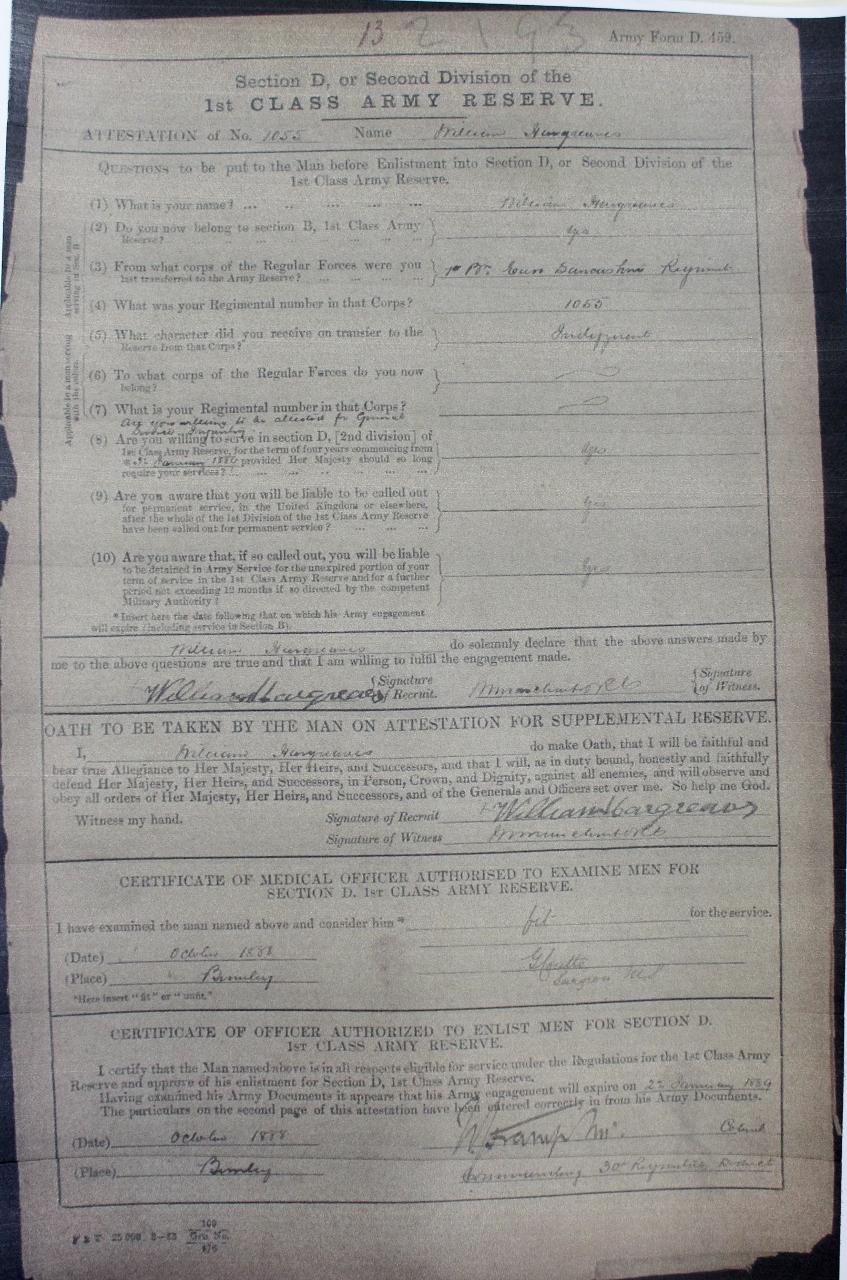 13 2193
Army Form D. 459.
Section D, or Second Division of the
1st CLASS ARMY RESERVE.
ATTESTATION of No. 1055 Name William Hargreaves
QUESTIONS to be put to the Man before Enlistment into Section D, or Second Division of the
1st Class Army Reserve.
(1) What is your name? ... ... ... ... ... William Hargreaves
Applicable to a man serving in Sec. B
(2) Do you now belong to section B, 1st Class Army
Reserve? ... ... ... ... ... yes
(3) From what corps of the Regular Forces were you
last transferred to the Army Reserve? ... ... ... 1st Bn East Lancashire Regiment
(4) What was your Regimental number in that Corps? 1055
(5) What character did you receive on transfer to the
Reserve from that Corps? Indifferent
Applicable to a man serving with the colors.
(6) To what corps of the Regular Forces do you now
belong?
(7) What is your Regimental number in that Corps?
Are you willing to be attested for General
Service Infantry
(8) Are you willing to serve in section D, [2nd division] of
1st Class Army Reserve, for the term of four years commencing from
* January provided Her Majesty should so long
require your services? ... ... ... ... yes
(9) Are you aware that you will be liable to be called out
for permanent service, in the United Kingdom or elsewhere,
after the whole of the 1st Division of the 1st Class Army Reserve
have been called out for permanent service? ... ... ... yes
(10) Are you aware that, if so called out, you will be liable
to be detained in Army Service for the unexpired portion of your
term of service in the 1st Class Army Reserve and for a further
period not exceeding 12 months if so directed by the competent
Military Authority? yes
*Insert here the date following that on which his Army engagement
will expire (including service in Section B).
William Hargreaves do solemnly declare that the above answers made by
me to the above questions are true and that I am willing to fulfil the engagement made.
William Hargreaves {Signature of Recruit. {Signature of Witness.
OATH TO BE TAKEN BY THE MAN ON ATTESTATION FOR SUPPLEMENTAL RESERVE.
I, William Hargreaves do make Oath, that I will be faithful and
bear true Allegiance to Her Majesty, Her Heirs, and Successors, and that I will, as in duty bound, honestly and faithfully
defend Her Majesty, Her Heirs, and Successors, in Person, Crown, and Dignity, against all enemies, and will observe and
obey all orders of Her Majesty, Her Heirs, and Successors, and of the Generals and Officers set over me. So help me God.
Witness my hand. Signature of Recruit William Hargreaves
Signature of Witness
CERTIFICATE OF MEDICAL OFFICER AUTHORISED TO EXAMINE MEN FOR
SECTION D. 1ST CLASS ARMY RESERVE.
I have examined the man named above and consider him* fit for the service.
(Date) October 1888
(Place) Burnley
Surgeon
*Here insert "fit" or "unfit."
CERTIFICATE OF OFFICER AUTHORIZED TO ENLIST MEN FOR SECTION D.
1ST CLASS ARMY RESERVE.
I certify that the Man named above is in all respects eligible for service under the Regulations for the 1st Class Army
Reserve and approve of his enlistment for Section D, 1st Class Army Reserve.
Having examined his Army Documents it appears that his Army engagement will expire on 2nd January 1889
The particulars on the second page of this attestation have been entered correctly in from his Army Documents.
(Date) October 1888 Colonel
(Place) Burnley Commanding 30th Regimental District
F & T 25 000 8—83 100
Gro No.
476